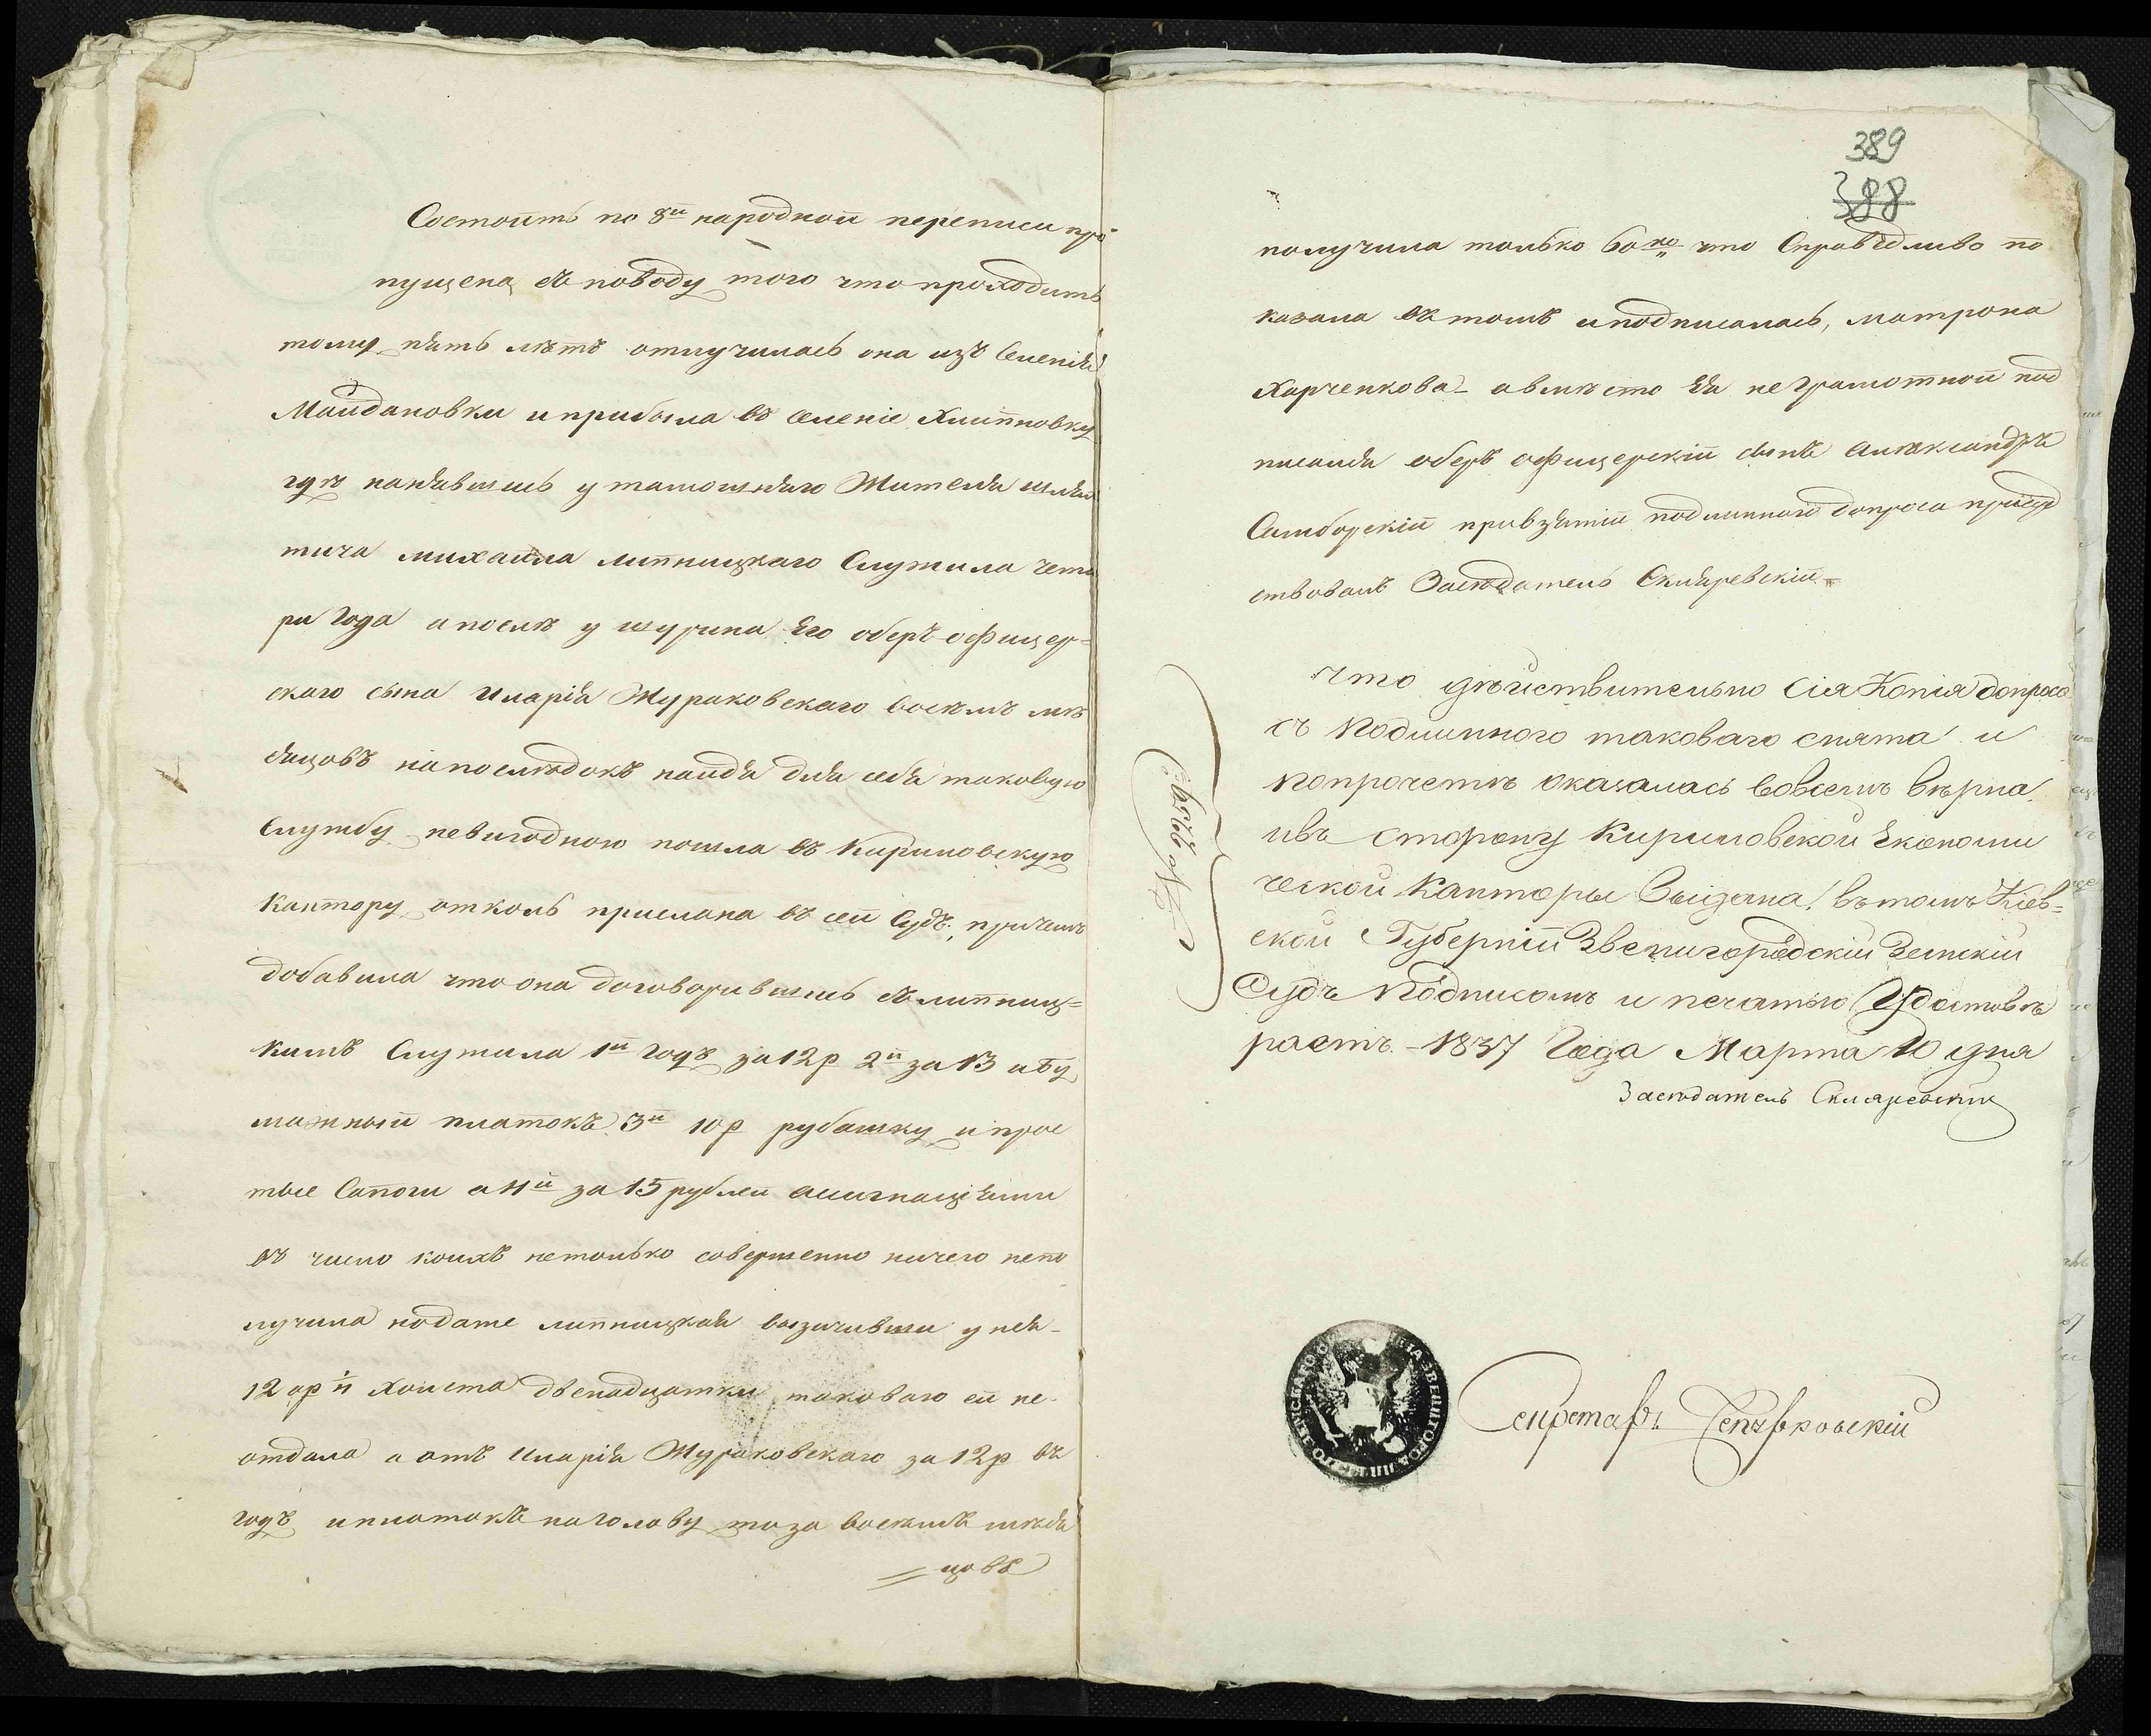 Состоитъ по 8й народной переписи про
пущена съ поводу того что проходитъ
тому пять лѣтъ отлучилась она изъ Селенія
Майдановки и прибыла въ селеніе Хлипновку
гдѣ нанявшись у тамошняго Жителя шлях
тича михаила липницкаго Служила четы
ри года а послѣ у шурина Его оберъ офицер=
скаго сына Иларія Жураковскаго восемъ мѣ
сяцовъ напослѣдокъ найдя для себя таковую
Службу невигодною пошла въ Кириловскую
Кантору отколь прислана въ сей Судъ, причемъ
добавила что она договорившись съ липниц=
кимъ Служила 1й годъ за 12р 2й за 13 и бу
мажный платокъ 3й 10р рубашку и прос
тые Сапоги а 4й за 15 рублей асигнаціями
въ число коихъ нетолько совершенно ничего непо
лучила но даже липницкая визичивши у нея
12 ар н холста двенадцатки таковаго ей не
отдала а отъ Иларія Жураковскаго за 12р въ
годъ и платокъ на голову то за восемъ мѣся
цовъ
389
388
получила только 60 ко что Справѣдливо по
казала въ томъ и подписалась, матрона
Харченкова - а вмѣсто Ея не грамотной под
писался оберъ офицерскій сынъ Александръ
Симборскій при взятіи подлинной допроса присуд
ствовалъ Засѣдатель Скляревскій
Что дѣйствительно Сія Копія допроса
съ Подлинного таковаго снята и
по прочетѣ оказалась Совсемъ вѣрна
и въ сторону Кириловской Економи
ческой Канторы Выдана, въ томъ Кіев=
ской Губерніи Звенигородскій Земскій
Судъ Подписомъ и печатью Удостовѣ
раетъ - 1837 Года Марта 10 дня
Засѣдатель Скляревскій
Секретарь